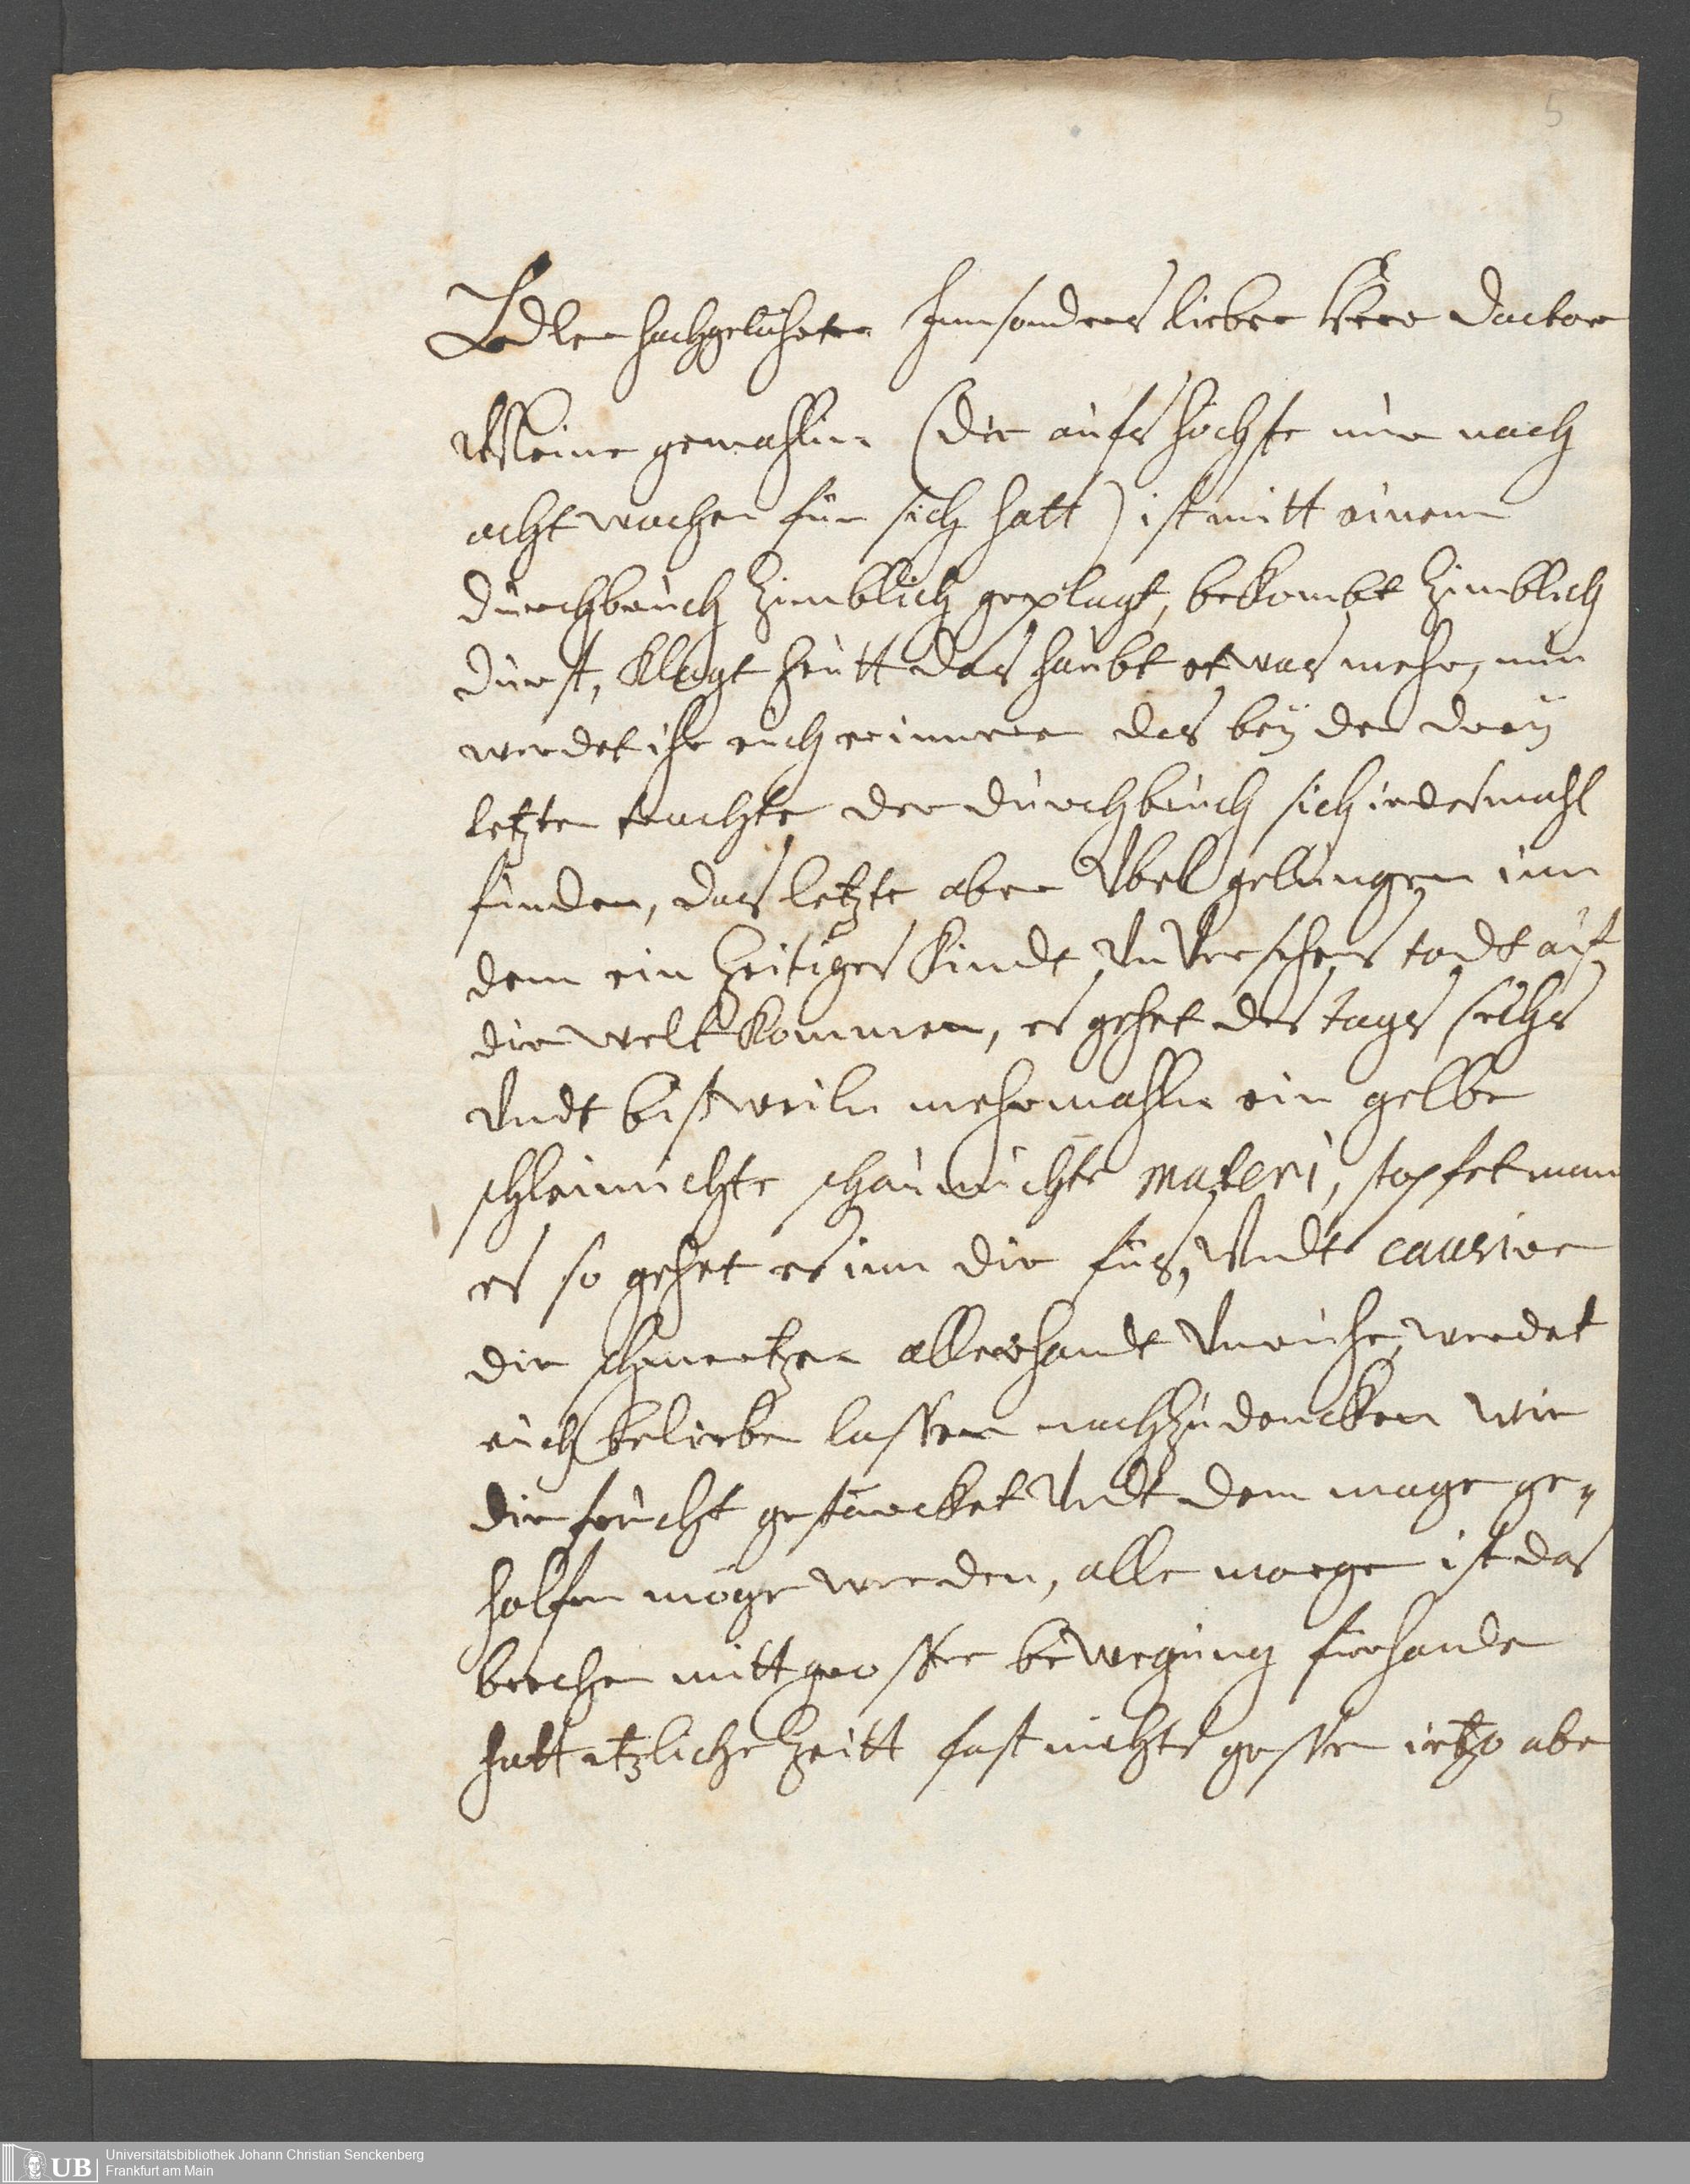 5
Edler hochgelahrter Innsonders lieber Herr Doctor
Meine gemahlin (die aufs höchste nur noch
acht wochen für sich hatt) ist mitt einem
durchbruch zimblich geplagt, bekombt zimblich
durst, klagt heutt das haubt etwas mehr, nun
werdet ihr euch erinneren das bey den drey
letzten trachten der durchbruch sich iedesmahl
funden, das letzte aber Übel gelungen inn
dem ein zeitiges kindt Unversehens todt auf
die welt kommen, es gehet des tags sechs
Undt bißweilen mehrmahlen ein gelbe
schleimichte schaumichte materi, stopfet man
es so gehet es inn die füs, Undt
die schmertzen allerhandt Unruhe, werdet
euch belieben lassen nachzudencken wie
die frucht gestercket Undt dem mage ge-
holfen möge werden, alle morgen ist das
brechen mitt grosser bewegung fürhanden
hatt etzliche Zeitt fast nichts gessen ietzo aber
UB Universitätsbibliothek Johann Christian Senckenberg
Frankfurt am Main